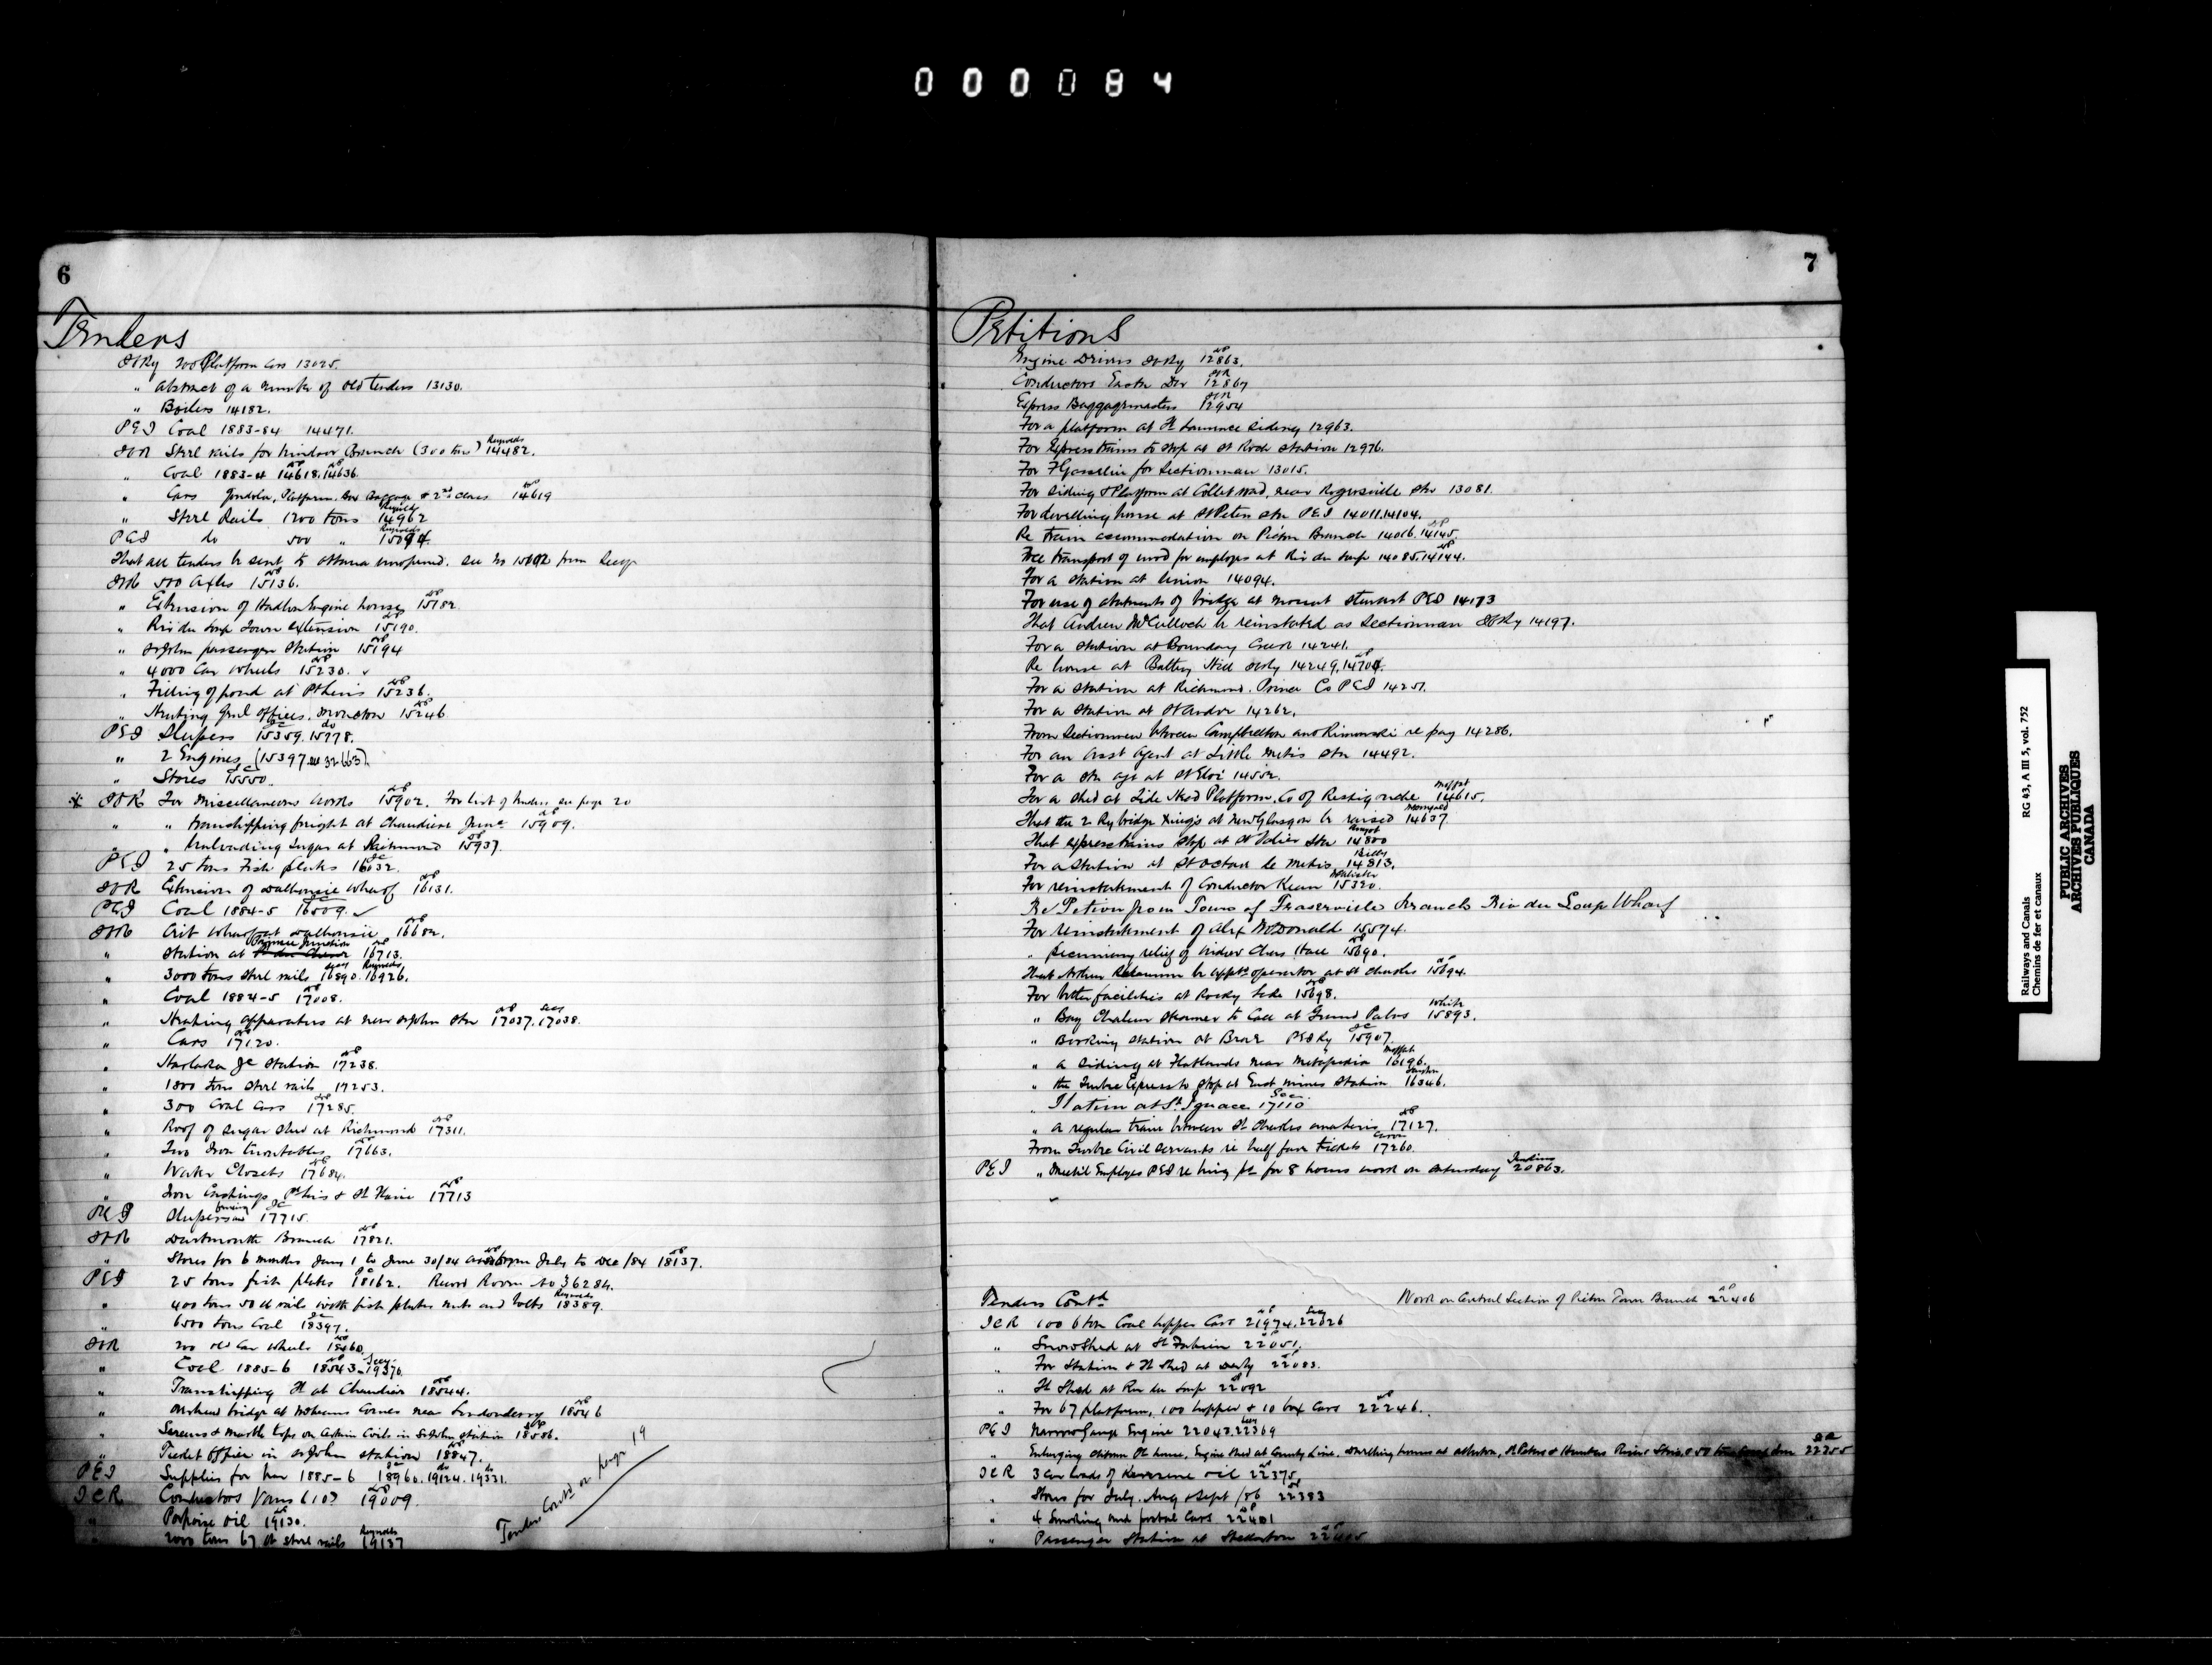 000084
6
Tenders
ICRy 200 Platform Cars 13025.
" Abstract of a number of old Tenders 13130.
" Boilers 14182.
PEI Coal 1883-84 14471.
ICR Steel rails for Windsor Branch (300 tons) Reynolds 14482.
" Coal 1883-4 14618.14636.
" Cars Gondola, Platform, Box Baggage & 2nd class 14619
" Steel Rails 1200 tons Reynolds 14962
PEI do 500 " Reynolds
That all tenders be sent to Ottawa unopened. see No from Secy
ICR 500 Axles 15136.
" Extension of Engine house 15182.
" Riv du Loup Town extension 15190.
" St John passenger Station 15194
" 4000 Car Wheels 15230.
" Filling of pond at Pt Levis 15236.
" Heating Genl Offices. Moncton 15246
PEI Sleepers 15359.15778.
" 2 Engines (15397.
" Stores 15550.
ICR For Miscellaneous Works 15902. For list of tenders see page 20
" " transhipping freight at Chaudiere Junc 15909.
" " Unloading Sugar at Richmond 15937.
PEI 25 tons Fish plates 16032.
ICR Extension of Dalhousie Wharf 16131.
PEI Coal 1884-5 16509.
ICR Crib Wharf at Dalhousie 16682.
" Station at Junction 16713.
" 3000 tons steel rails Secy 16890. Reynolds 16926.
" Coal 1884-5 17008.
" Heating apparatus at new St John Stn 17037. Secy 17038.
" Cars 17120.
" Jc Station 17238.
" 1800 tons steel rails 17253.
" 300 Coal Cars 17285.
" Roof of Sugar Shed at Richmond 17311.
" Two Iron turntables 17663.
" Water Closets 17684.
" Iron Castings Pt Levis & St Flavie 17713
PEI Sleepers and fencing 17715.
ICR Dartmouth Branch 17821.
" Stores for 6 months Jany 1 to June 30/84 and from July to Dec /84 18137.
PEI 25 tons fish plates 18162. Record Room No 36284.
" 400 tons 50 lb rails with fish plates nuts and bolts Reynolds 18389.
" 6500 tons Coal 18397.
ICR 200 old Car Wheels 18460.
" Coal 1885-6 18543. Secy 19370.
" Transhipping Ft at Chaudiere 18544.
" Overhead bridge at McKeans Corner near Londonderry 18546
" Screens & Marble tops on Coils in St John station 18586.
" Ticket Office in St John station 18847.
PEI Supplies for Year 1885-6 18960. 19124. 19331.
ICR Conductors Vans (10) 19009.
" Porpoise Oil 19130.
" 2000 tons 67 lb steel rails Reynolds 19137
Tenders Contd on page 19
7
Petitions
Engine Drivers ICRy 12863.
Conductors Eastn Div 12867
Express Baggagemasters 12954
For a platform at St Laurence Siding 12963.
For Express trains to stop at St Rock Station 12976.
For F Gosselin for Sectionman 13015.
For Siding & Platform at Collet road, near Rogersville Stn 13081.
For dwelling house at St Peters Stn PEI 14011.14104.
Re train accommodation on Pictou Branch 14016.14145.
Free transport of wood for employes at Riv du Loup 14085.14144.
For a Station at Union 14094.
For use of abutments of bridge at Mount Stewart PEI 14173
That Andrew McCulloch be reinstated as Sectionman ICRy 14197.
For a Station at Boundary Creek 14241.
Re house at Battery Hill ICRy 14249.
For a Station at Richmond. Prince Co PEI 14251.
For a Station at St Andre 14262.
From Sectionmen between Campbellton and Rimouski re pay 14286.
For an Asst Agent at Little Metis Stn 14492.
For a Stn agt at St Eloi 14552.
For a shed at Tide Head Platform. Co of Restigouche Moffat 14615.
That the 2 Ry bridge Xings at New Glasgow be raised 14637.
That express trains stop at St Stn 14800
For a Station at St Octave de Metis 14813.
For reinstatement of Conductor Keen 15320.
Re Petion from Town of Fraserville Branch Riv du Loup Wharf
For reinstatement of Alex McDonald 15574.
" pecuniary relief of Widow Chas Hall 15690.
That Arthur be apptd operator at St Charles 15694.
For better facilities at Rocky Lake 15698.
" Bay Chaleur Steamer to Call at Grand Pabos White 15893.
" Booking station at PEI Ry 15907.
" a Siding at Flatlands near Metapedia Moffat 16196.
" the Quebec Express to stop at East Mines Station 16346.
" Station at St Ignace Sec 17110
" a regular train between St Charles 17127.
From Quebec Civil Servants re half fare tickets 17260.
PEI " Employes PEI re for 8 hours work on Saturday Jenkins 20863.
Tenders Contd
Work on Central Section of Pictou Town Branch 22406
ICR 100 6 ton Coal hopper Cars 21974. Secy 22026
" Snow Shed at St Fabien 22051.
" For Station & Ft Shed at Derby 22083.
" Ft Shed at Riv du Loup 22092
" For 67 platform, 100 hopper & 10 box Cars 22246.
PEI Narrow Gauge Engine 22043. Secy 22369
" Enlarging Station Ft house, Engine Shed at County Line, dwelling houses at Alberton, St Peters & Hunters River 22255
ICR 3 Car loads of Kerosene oil 22375.
" Stores for July. Aug & Sept /86 22383
" 4 Smoking and postal Cars 22401
" Passenger Station at Stellarton
Railways and Canals RG 43, A III 5, vol. 752
Chemins de fer et canaux
PUBLIC ARCHIVES
ARCHIVES PUBLIQUES
CANADA